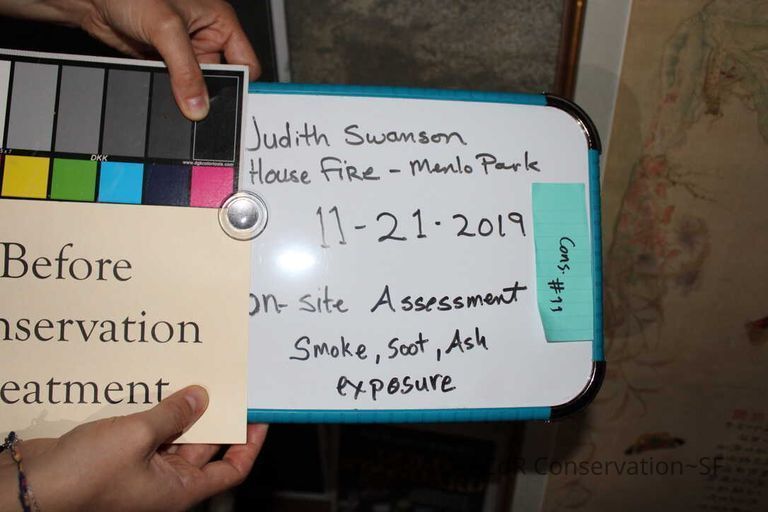 DKK
www.dgkcolortools.com
Before
nservation
eatment
Judith Swanson
House Fire - Menlo Park
11-21-2019
on-site Assessment
Smoke, Soot, Ash
exposure
Cons. #11
Conservation~SF